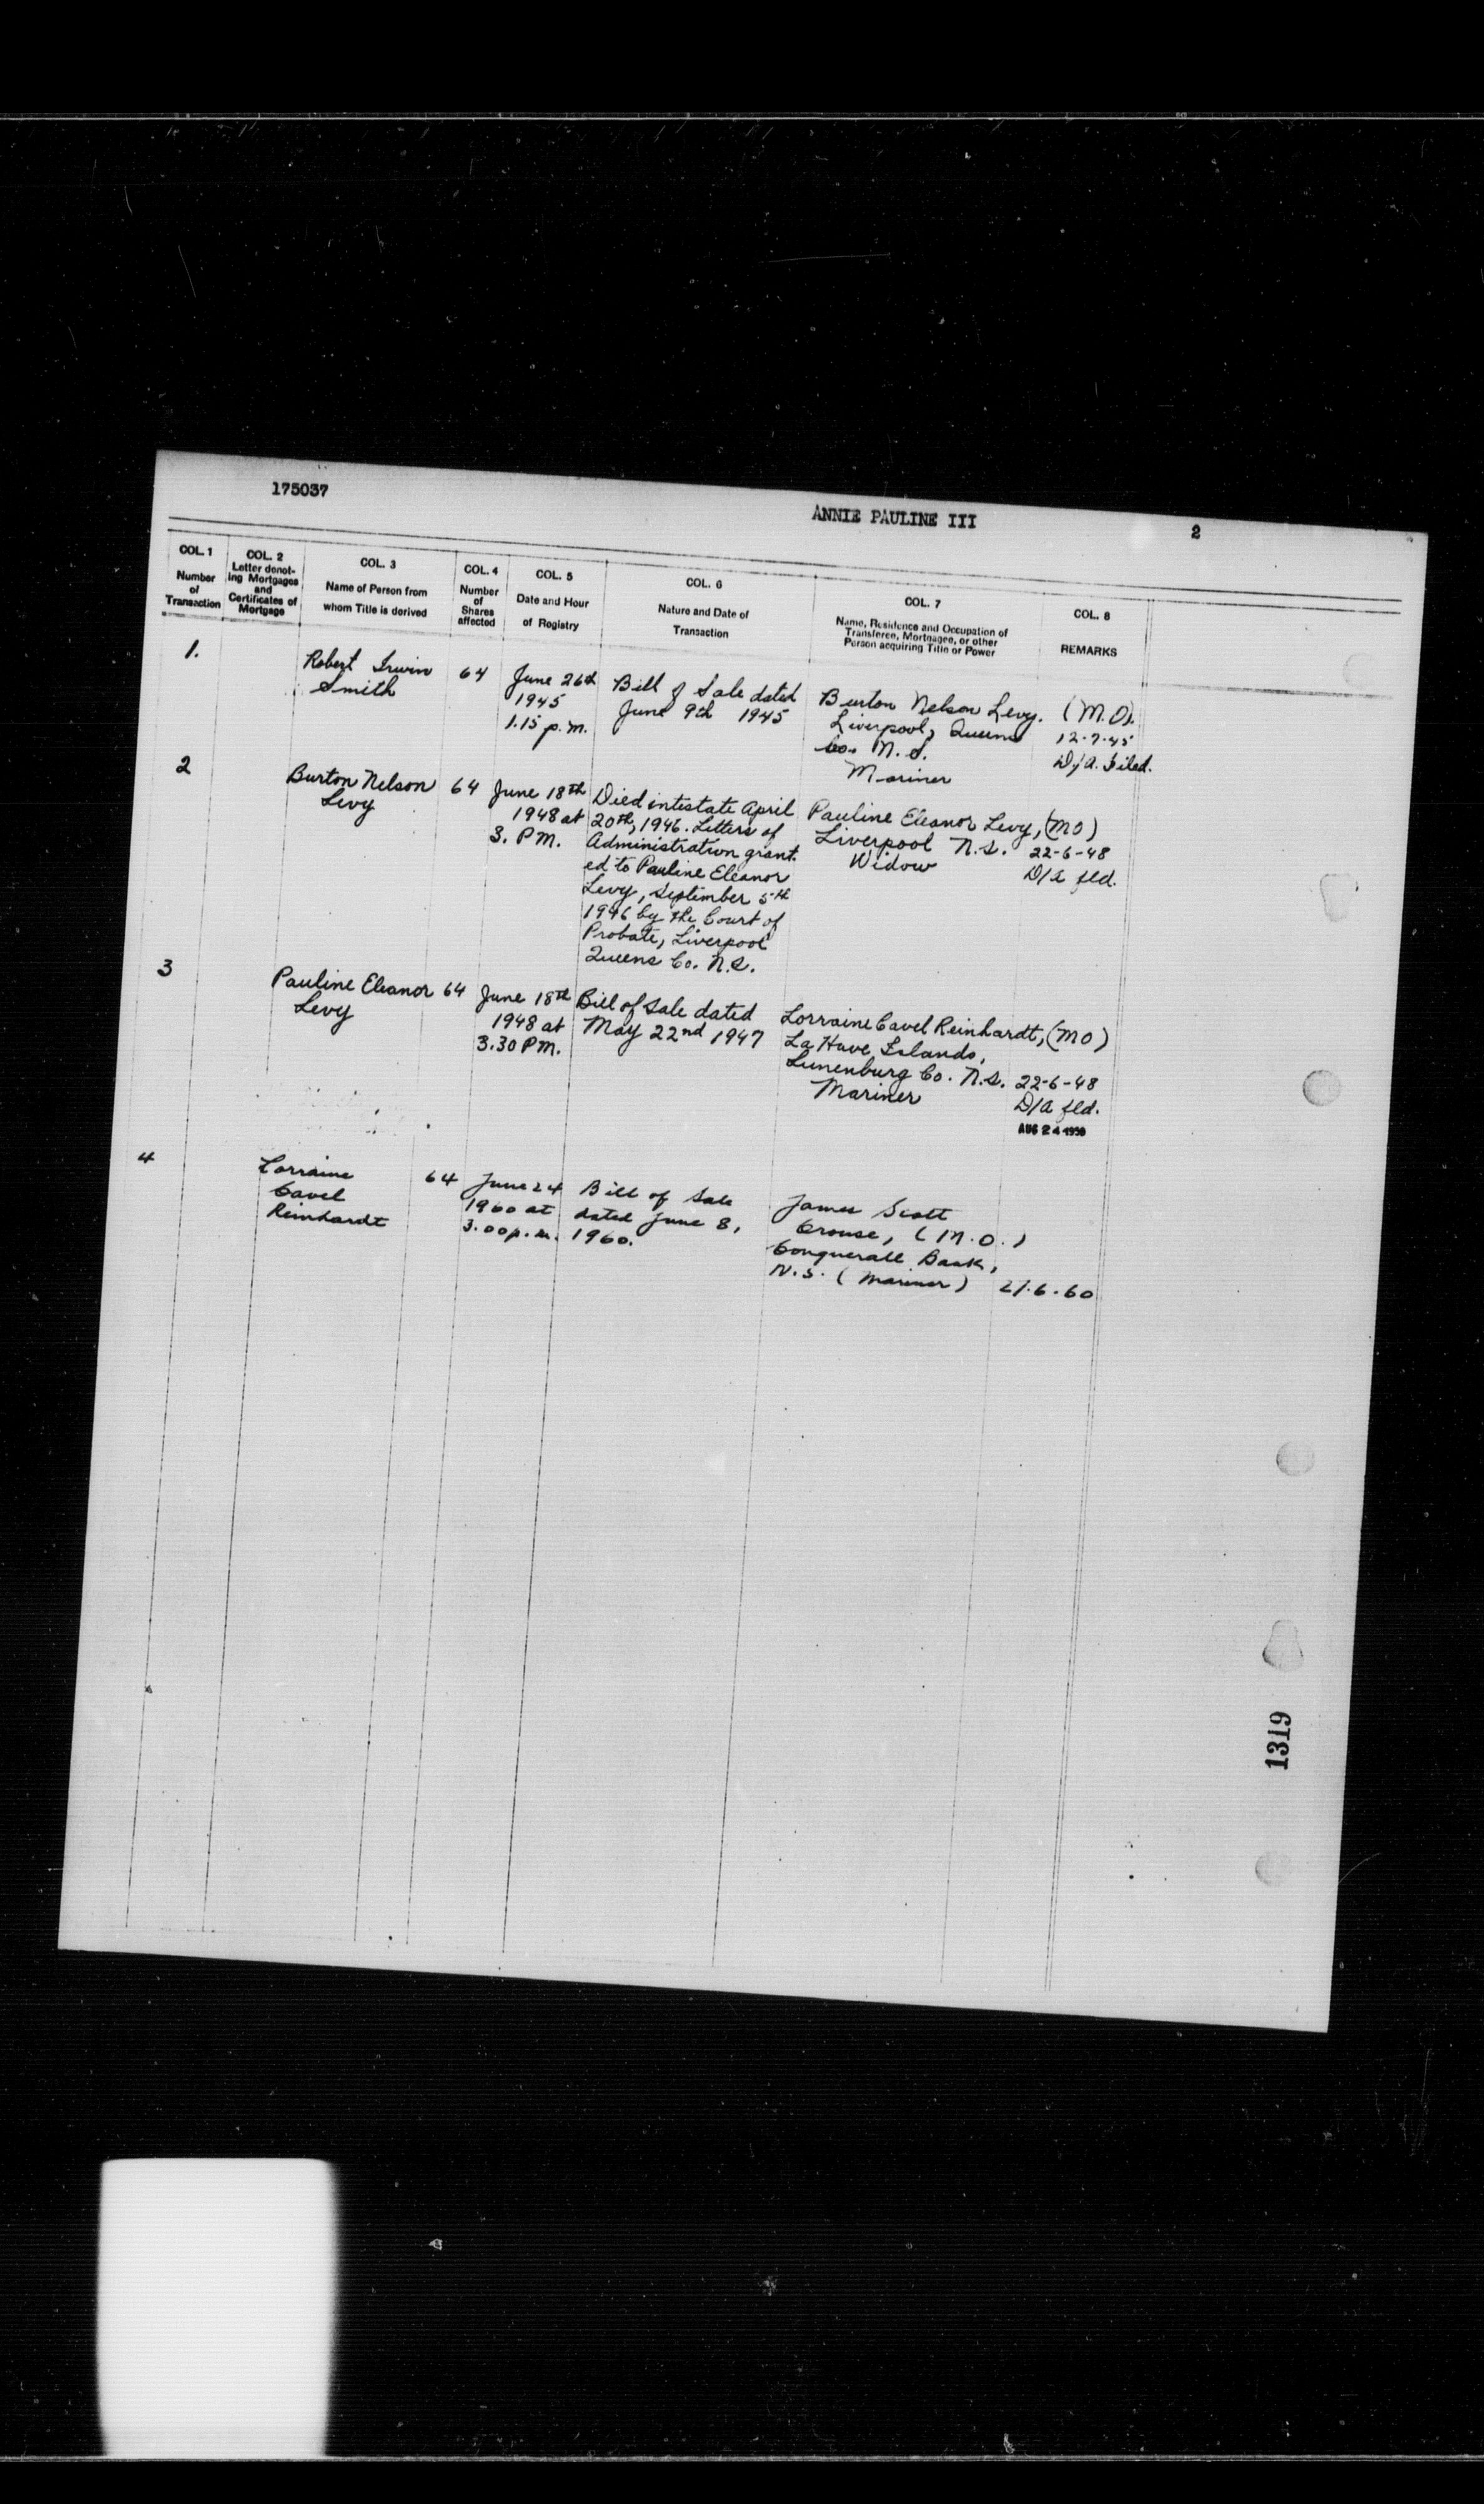 175037
ANNIE PAULINE III
2
COL. 1
Number
of
Transaction
COL. 2
Letter denot-
ing Mortgages
and
Certificates of
Mortgage
COL. 3
Name of Person from
whom Title is derived
COL. 4
Number
of
Shares
affected
COL. 5
Date and Hour
of Registry
COL. 6
Nature and Date of
Transaction
COL. 7
Name, Residence and Occupation of
Transferee, Mortgagee, or other
Person acquiring Title or Power
COL. 8
REMARKS
1.
Robert Irwin
Smith
64
June 26th
1945
1.15 p.m.
Bill of Sale dated
June 9th 1945
Burton Nelson Levy.
Liverpool, Queens
Co. N.S.
Mariner
(M.O).
12-7-45
D/A. Filed.
2
Burton Nelson
Levy
64
June 18th
1948 at
3. PM.
Died intestate April
20th, 1946. Letters of
Administration grant-
ed to Pauline Eleanor
Levy, September 5th
1946 by the Court of
Probate, Liverpool
Queens Co. N.S.
Pauline Eleanor Levy,
Liverpool N.S.
Widow
(MO)
22-6-48
D/A fld.
3
Pauline Eleanor
Levy
64
June 18th
1948 at
3.30 PM.
Bill of Sale dated
May 22nd 1947
Lorraine Cavel Reinhardt,
La Have Islands,
Lunenburg Co. N.S.
Mariner
(MO)
22-6-48
D/A fld.
AUG 24 1950
4
Lorraine
Cavel
Reinhardt
64
June 24
1960 at
3.00 p.m.
Bill of Sale
dated June 8,
1960.
James Scott
Crouse, (M.O.)
Conquerall Bank,
N.S. (Mariner)
27.6.60
1319